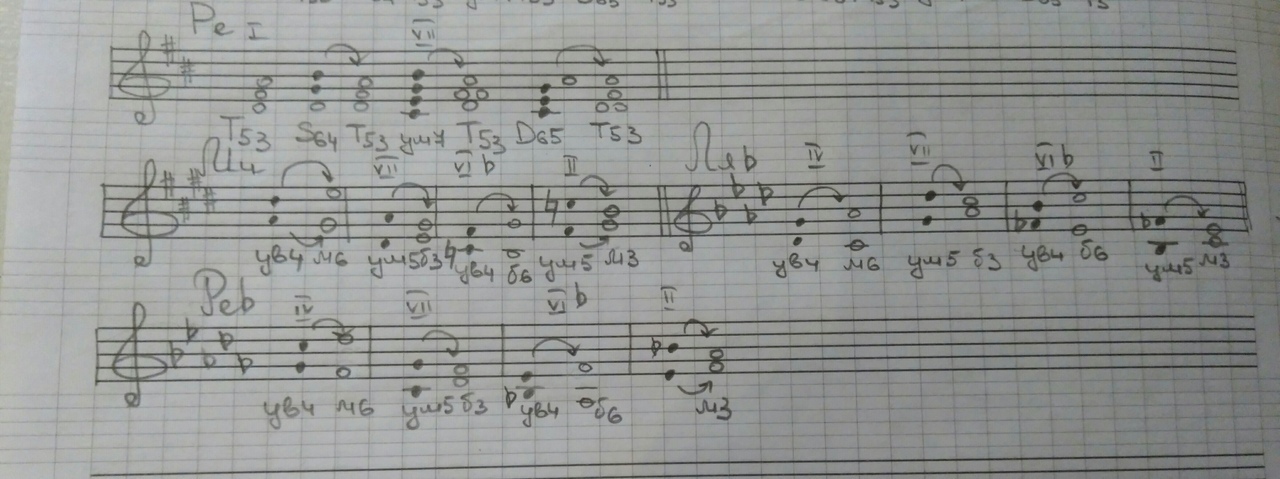 Ре I VII
T53 S64 T53 ум7 T53 D65 T53
Ми VII VI b II Ля b IV VII VI b II
ув4 м6 ум5 б3 ув4 б6 ум5 м3 ув4 м6 ум5 б3 ув4 б6 ум5 м3
Ре b IV VII VI b II
ув4 м6 ум5 б3 ув4 б6 м3